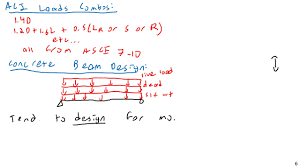 ACI Loads Combos:
1.4D
1.2D + 1.6L + 0.5(LR or S or R)
etc...
all from ASCE 7-10
Concrete Beam Design:
live load
dead
slf wt
Tend to design for mo.